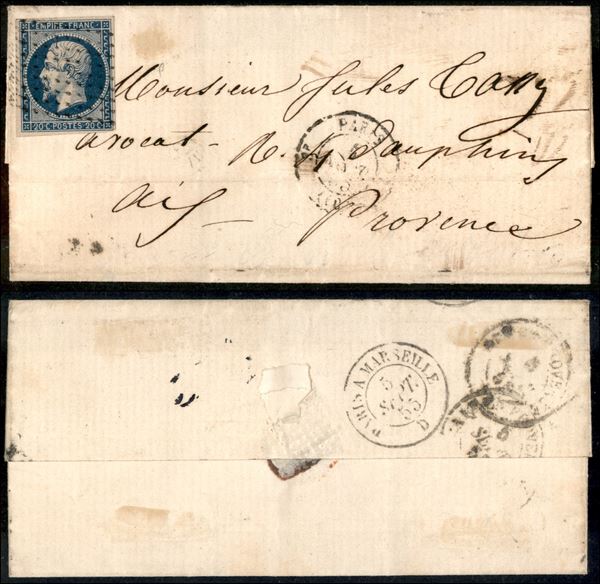 EMPIRE FRANC.
20 C. POSTES 20 C.
Monsieur Jules Tassy
avocat R. 4 Dauphins
aix Provence
PARIS
PARIS A MARSEILLE
5
SEPT.
55
D